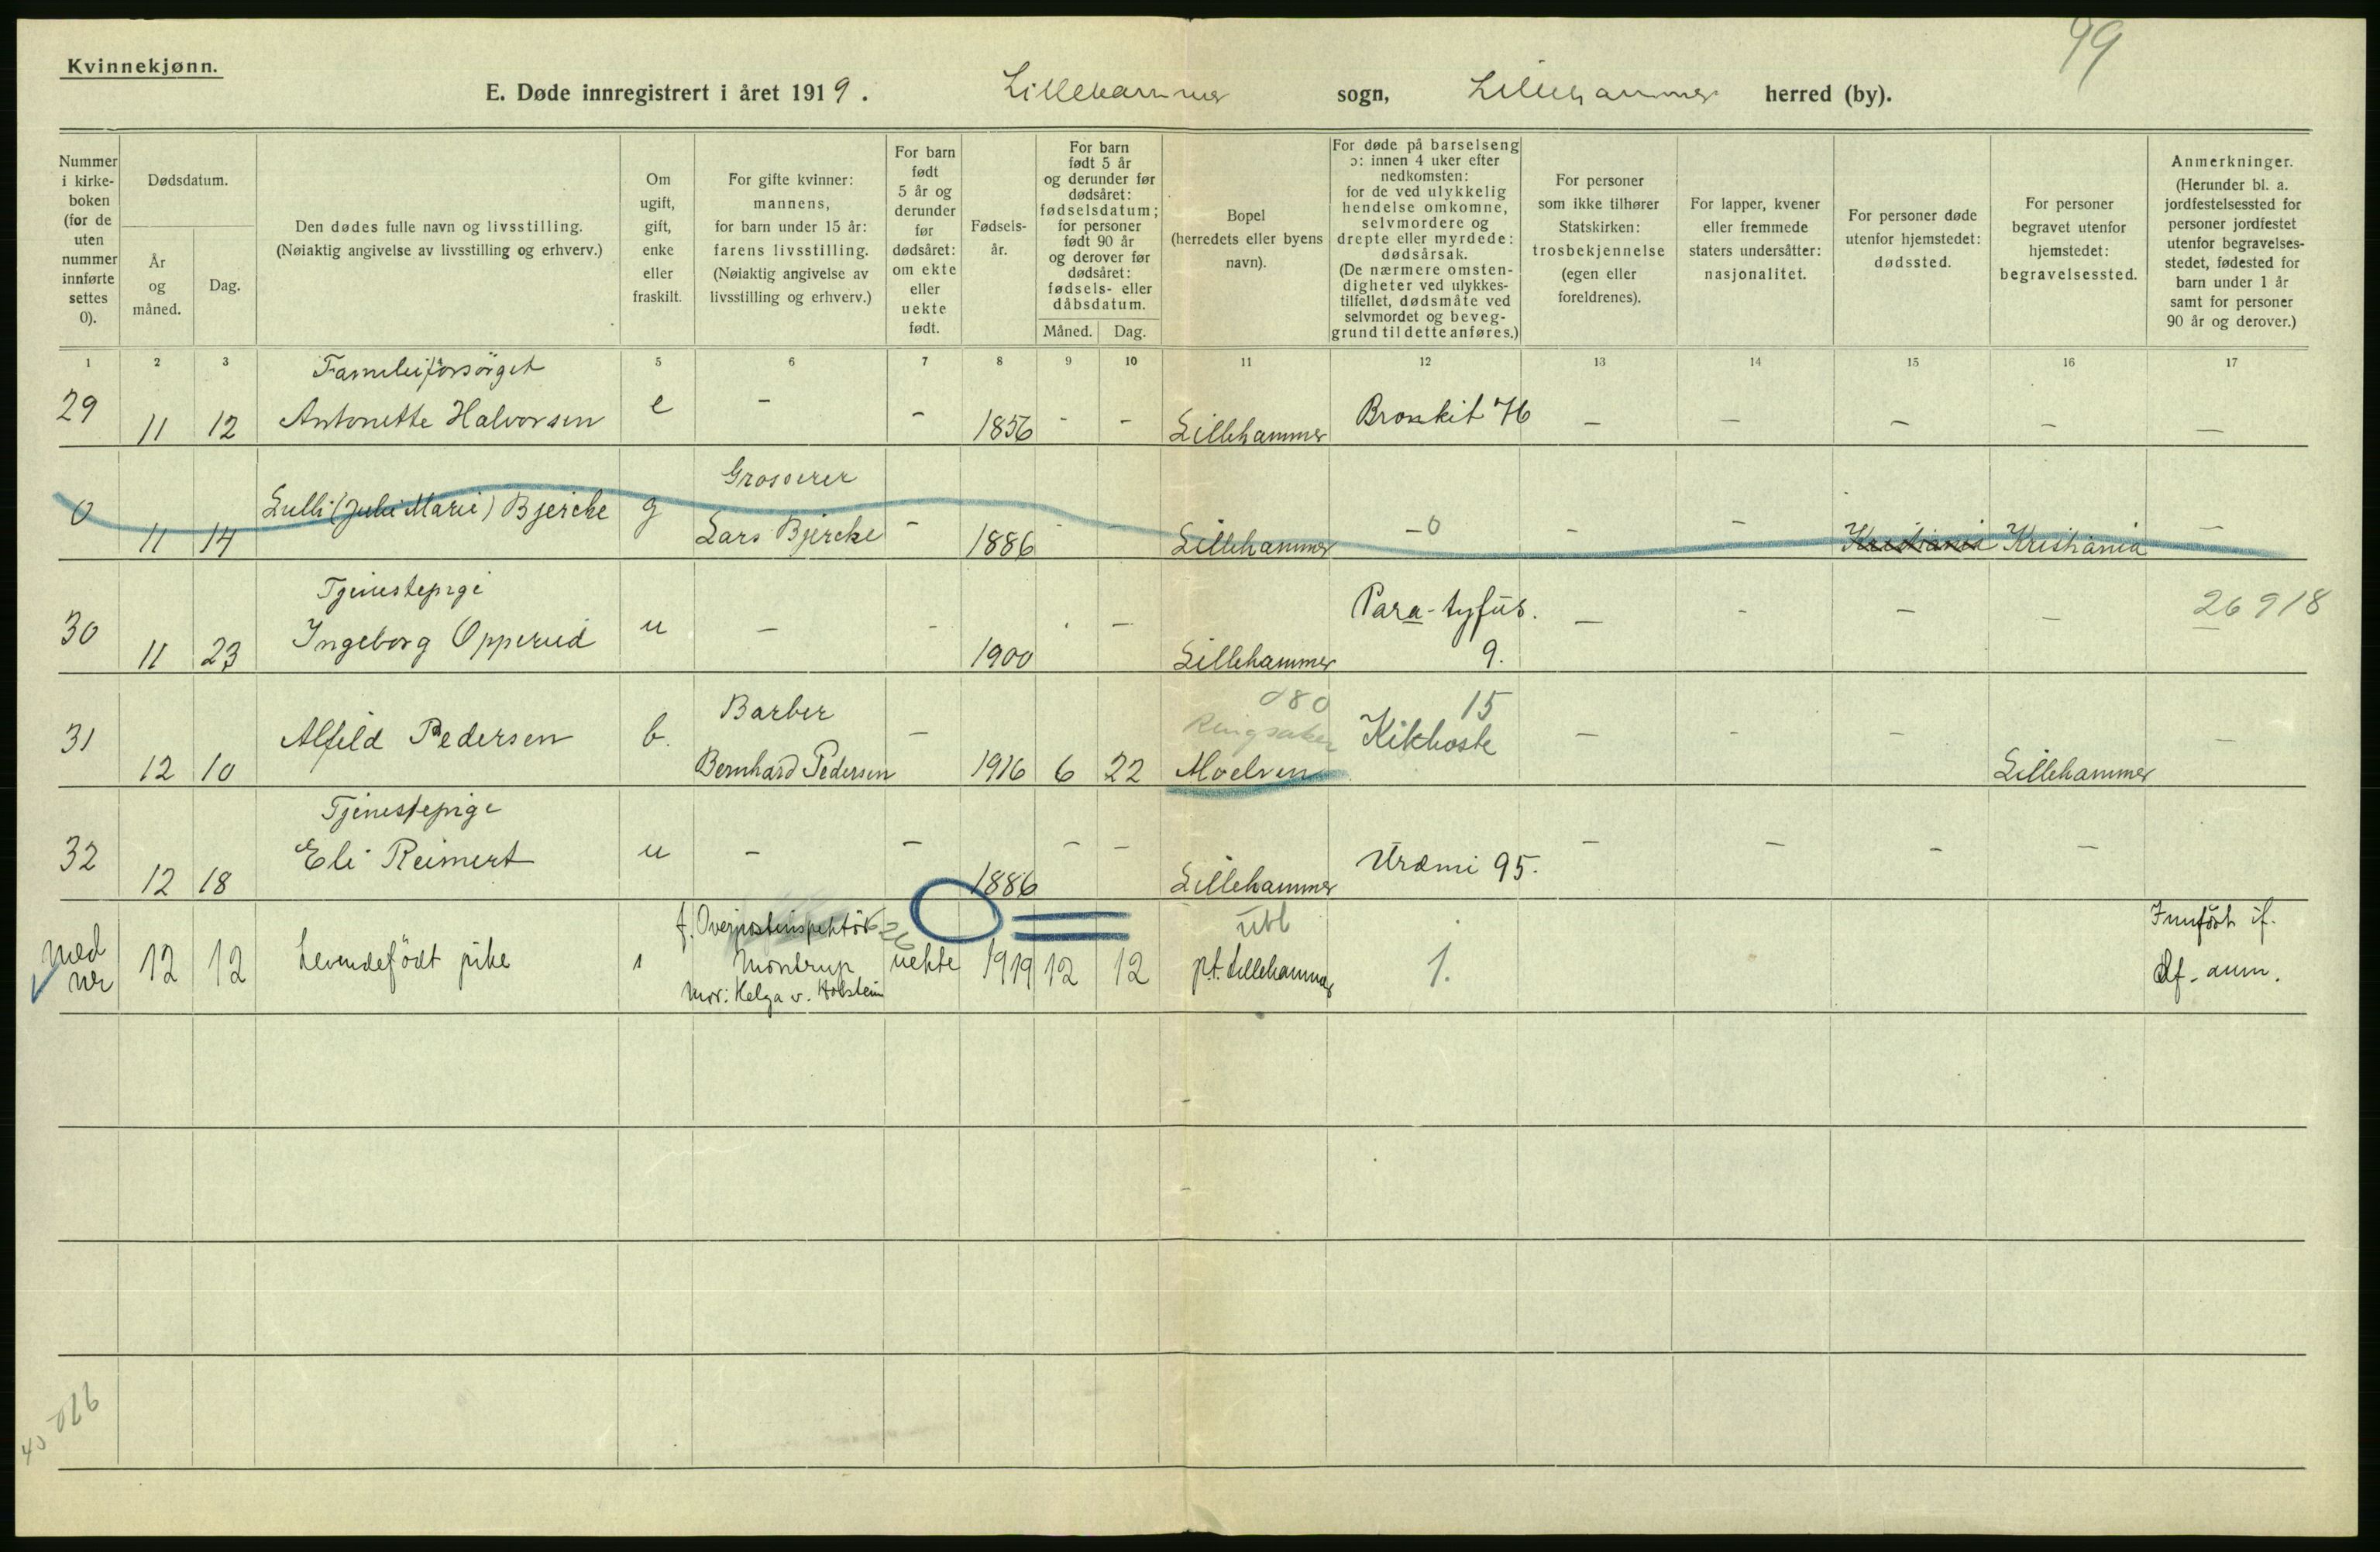 99
Kvinnekjønn.
E. Døde innregistrert i året 1919. Lillehammer sogn, Lillehammer herred (by).
Nummer
i kirke-
boken
(for de
uten
nummer
innførte
settes
0).
Dødsdatum.
År
og
måned.
Dag.
Den dødes fulle navn og livsstilling.
(Nøiaktig angivelse av livsstilling og erhverv.)
Om
ugift,
gift,
enke
eller
fraskilt.
For gifte kvinner:
mannens,
for barn under 15 år:
farens livsstilling.
(Nøiaktig angivelse av
livsstilling og erhverv.)
For barn
født
5 år og
derunder
før
dødsåret:
om ekte
eller
uekte
født.
Fødsels-
år.
For barn
født 5 år
og derunder før
dødsåret:
fødselsdatum;
for personer
født 90 år
og derover før
dødsåret:
fødsels- eller
dåbsdatum.
Måned. Dag.
Bopel
(herredets eller byens
navn).
For døde på barselseng
ɔ: innen 4 uker efter
nedkomsten:
for de ved ulykkelig
hendelse omkomne,
selvmordere og
drepte eller myrdede:
dødsårsak.
(De nærmere omsten-
digheter ved ulykkes-
tilfellet, dødsmåte ved
selvmordet og beveg-
grund til dette anføres.)
For personer
som ikke tilhører
Statskirken:
trosbekjennelse
(egen eller
foreldrenes).
For lapper, kvener
eller fremmede
staters undersåtter:
nasjonalitet.
For personer døde
utenfor hjemstedet:
dødssted.
For personer
begravet utenfor
hjemstedet:
begravelsessted.
Anmerkninger.
(Herunder bl. a.
jordfestelsessted for
personer jordfestet
utenfor begravelses-
stedet, fødested for
barn under 1 år
samt for personer
90 år og derover.)
1 2 3 5 6 7 8 9 10 11 12 13 14 15 16 17
Familieforsörget
29 11 12 Antonette Halvorsen e – – 1856 - - Lillehammer Bronkit 76 – – – – –
Grosserer
0 11 14 Lulli (Julie Marie) Bjercke g Lars Bjercke – 1886 - - Lillehammer – 0 – – Kristiania Kristiania –
Tjenestepige
30 11 23 Ingeborg Opperud u – - 1900 - – Lillehammer Para-tyfus. 9. – - – – 26918
Barber 080 15
Ringsaker
31 12 10 Alfild Pedersen b. Bernhard Pedersen – 1916 6 22 Moelven Kikhoste – - – Lillehammer –
Tjenestepige
32 12 18 Eli Reimert u – – 1886 – – Lillehammer Uræmi 95. – – – –
f. Overpostinspektör 26 utl Innført if.
uten nr 12 12 Levendefödt pike Montrup uekte 1919 12 12 p.t. Lillehammer 1. df-anm.
Mor: Helga v. Holstein